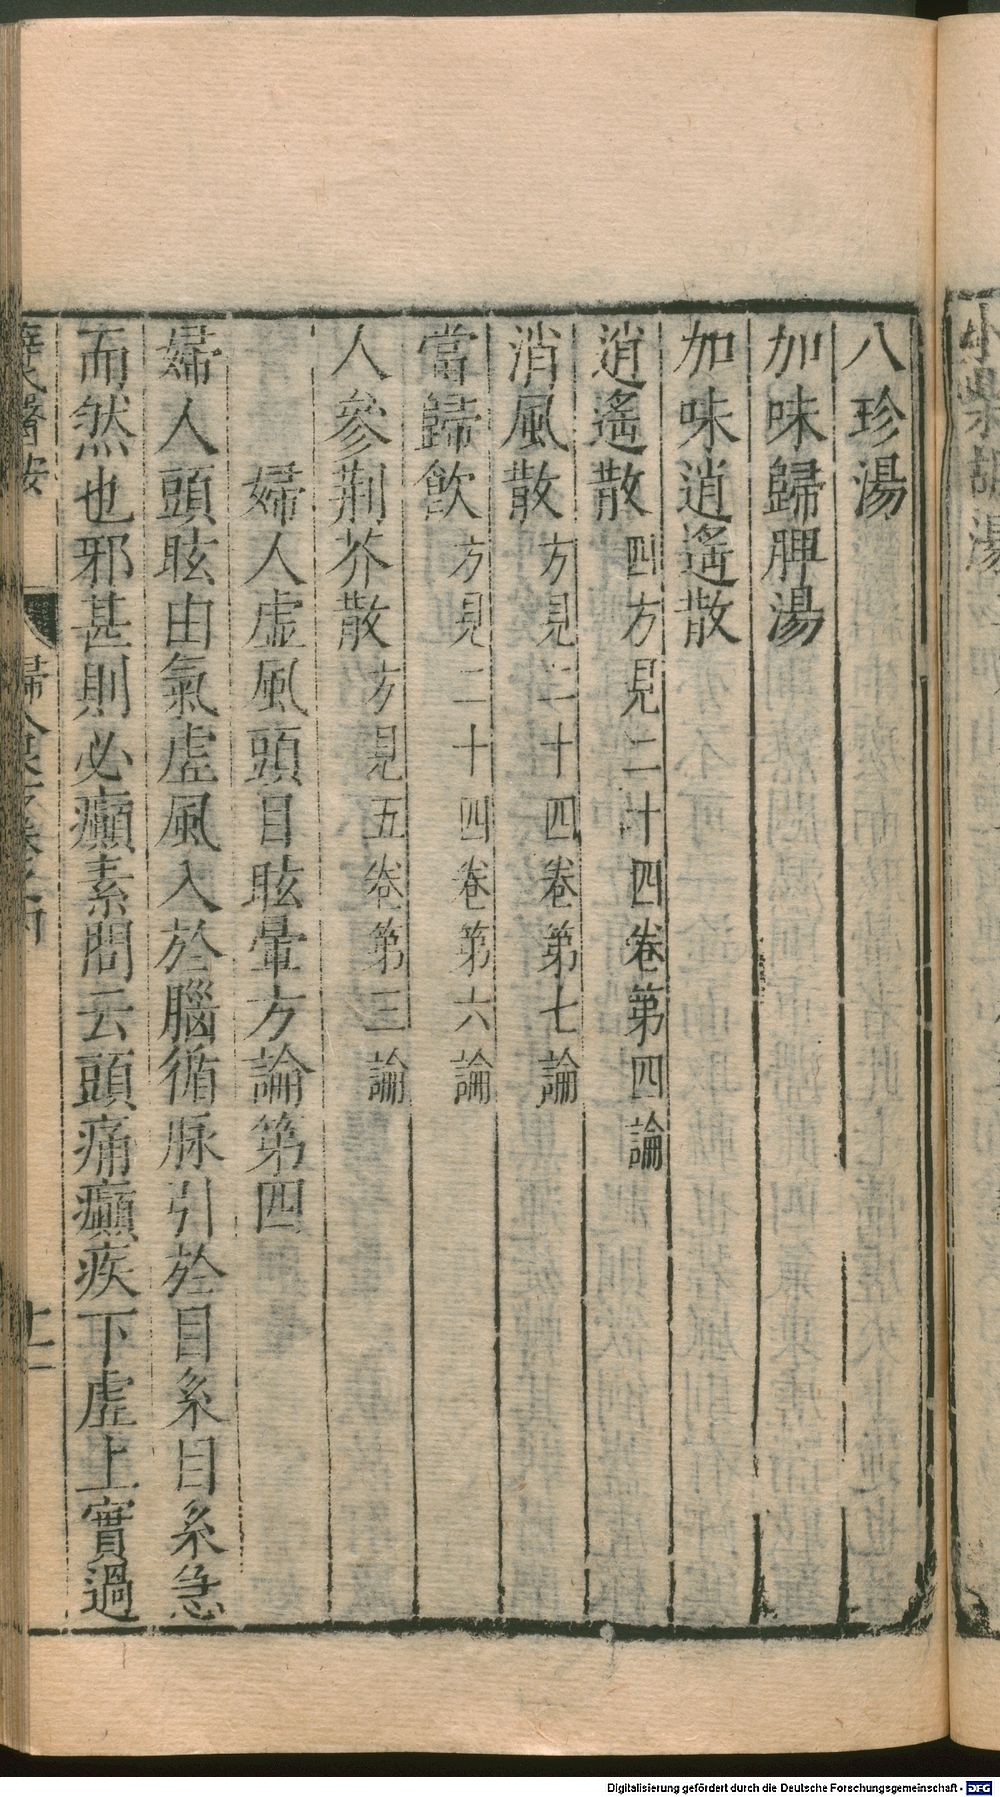 八珍湯
加味歸脾湯
加味逍遙散
逍遙散 四方見二十四卷第四論
消風散 方見二十四卷第七論
當歸飲 方見二十四卷第六論
人參荆芥散 方見五卷第三論
婦人虛風頭目眩暈方論第四
婦人頭眩由氣虛風入於腦循脉引於目系目系急
而然也邪甚則必癲素問云頭痛癲疾下虛上實過
Digitalisierung gefördert durch die Deutsche Forschungsgemeinschaft - DFG